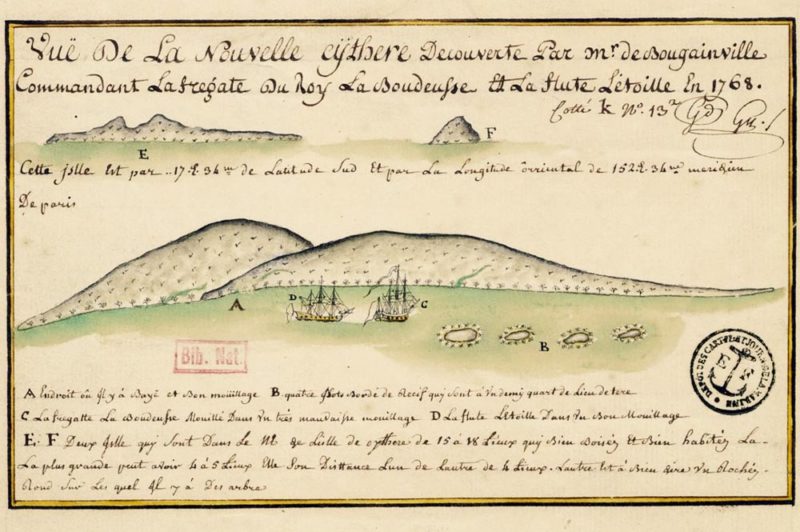 Vuë De La Nouvelle cÿthere Decouverte Par mr. de Bougainville
Commandant La fregate Du Roy La Boudeusse Et La flute L'étoille En 1768.
Cotté k No. 13
E
F
Cette jslle Est par 17. 34 de Latitude Sud Et par La Longitude orriental de 152. 34 meridien
De paris
A
D
C
B
Bib. Nat.
DEPOT DES CARTES ET JOURNAUX DE LA MARINE
A Endroit où jl y à Baye Et Bon mouillage B quatre jlots Bordé de Recif quy sont à Un demi quart de Lieu de tere
C La fregatte La Boudeusse Mouillé Dans Un trés mauvaisse mouillage D La flute L'Etoille Dans Un Bon Mouillage
E. F Deux jslle quy sont Dans Le de Lisle de cythere de 15 à 18 Lieux quy Bien Boisez Et Bien habitéz La
La plus grande peut avoir 4 à 5 Lieux Elle son Disttance Lun de Lautre de 4 Lieux. Lautre Est à Bien dire Un Rochéz
Rond sur Les quel jl y à Des arbre